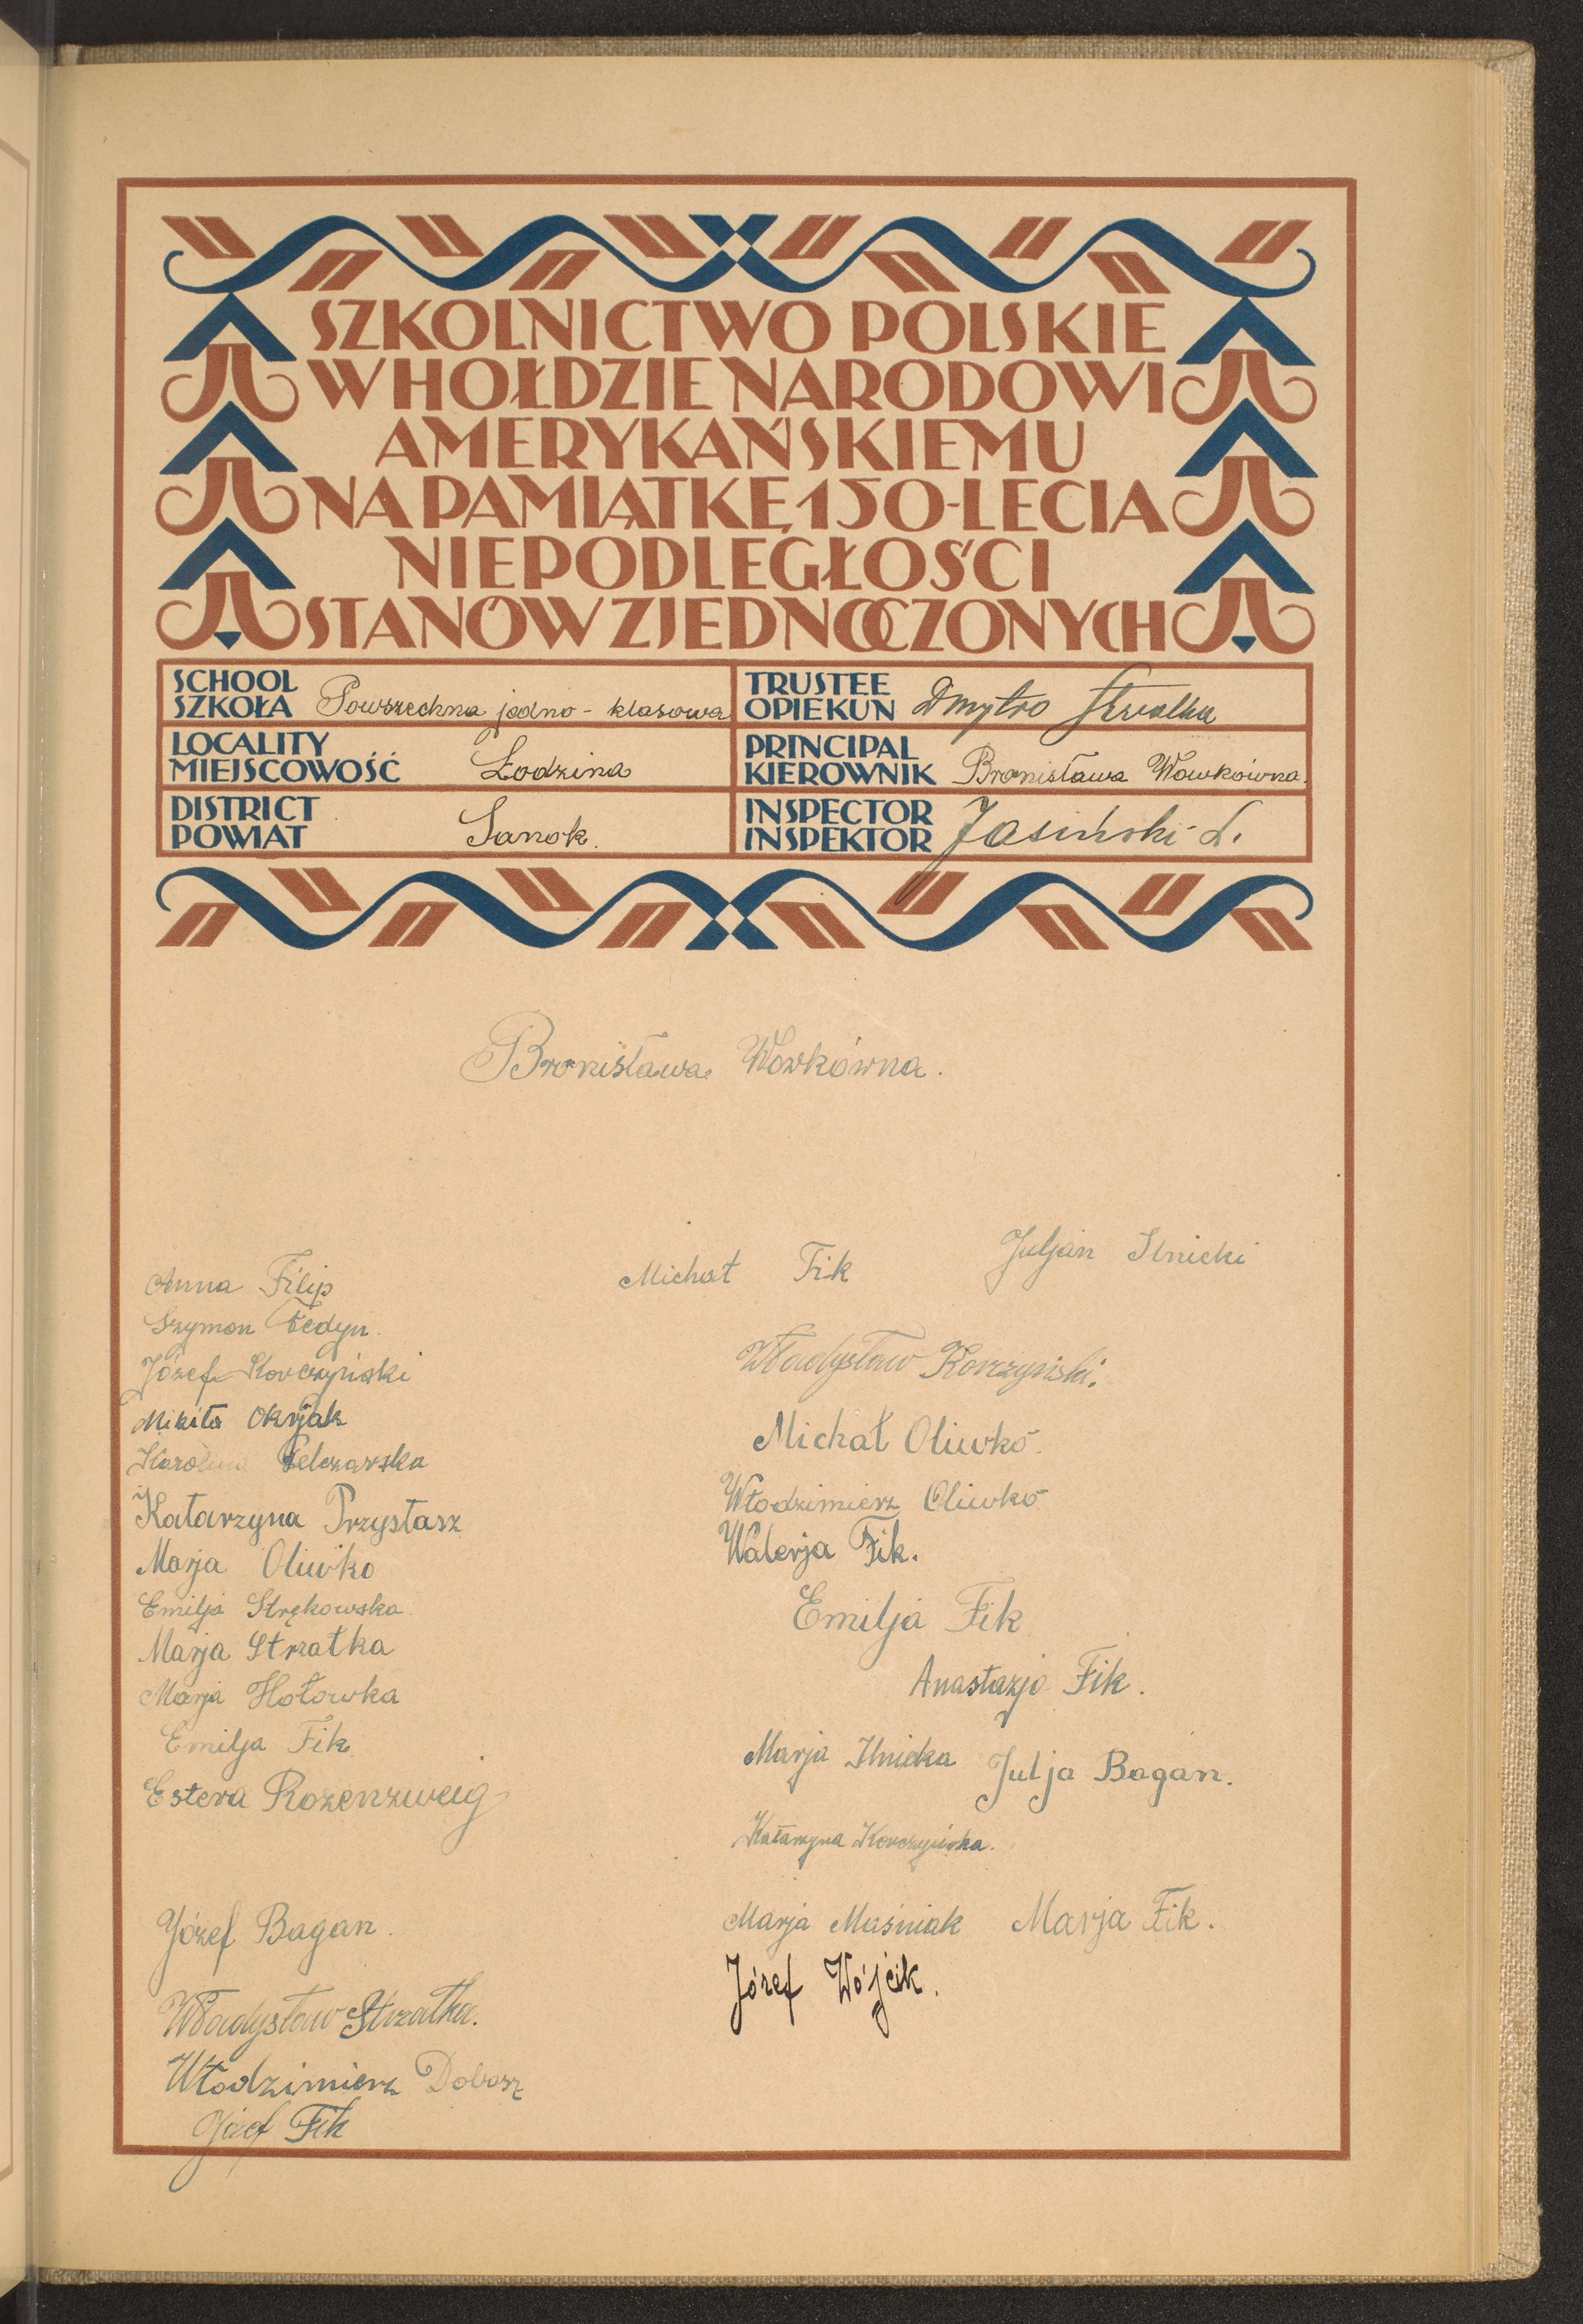 SZKOLNICTWO POLSKIE
W HOŁDZIE NARODOWI
AMERYKAŃSKIEMU
NA PAMIĄTKĘ 150-LECIA
NIEPODLEGŁOŚCI
STANÓW ZJEDNOCZONYCH
SCHOOL
SZKOŁA Powszechna jedno-klasowa
LOCALITY
MIEJSCOWOŚĆ Łodzina
DISTRICT
POWIAT Sanok.
TRUSTEE
OPIEKUN Dmytro
PRINCIPAL
KIEROWNIK Bronisława Wowkówna.
INSPECTOR
INSPEKTOR Jasiński L.
Bronisława Wowkówna.
Anna Filip
Szymon Fedyn.
Józef Korczyński
Mikita Okrjak
Karolina Pelczarska
Katarzyna Przystasz
Marja Oliwko
Emilja Strękowska
Marja Strzałka
Marja Hołowka
Emilja Fik
Estera Rozenzweig
Józef Bagan.
Władysław Strzałka.
Włodzimierz Dobosz
Józef Fik
Michał Fik
Juljan Ilnicki
Władysław Korczyński.
Michał Oliwko.
Włodzimierz Oliwko
Walerja Fik.
Emilja Fik
Anastazja Fik.
Marja Ilnicka Julja Bagan.
Katarzyna Korczyńska.
Marja Maśniak Marja Fik.
Józef Wójcik.